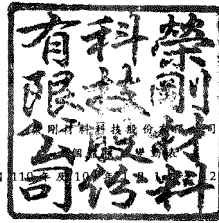 榮剛材料
科技股份
有限公司
剛材料科技股份有限公司
110年及10